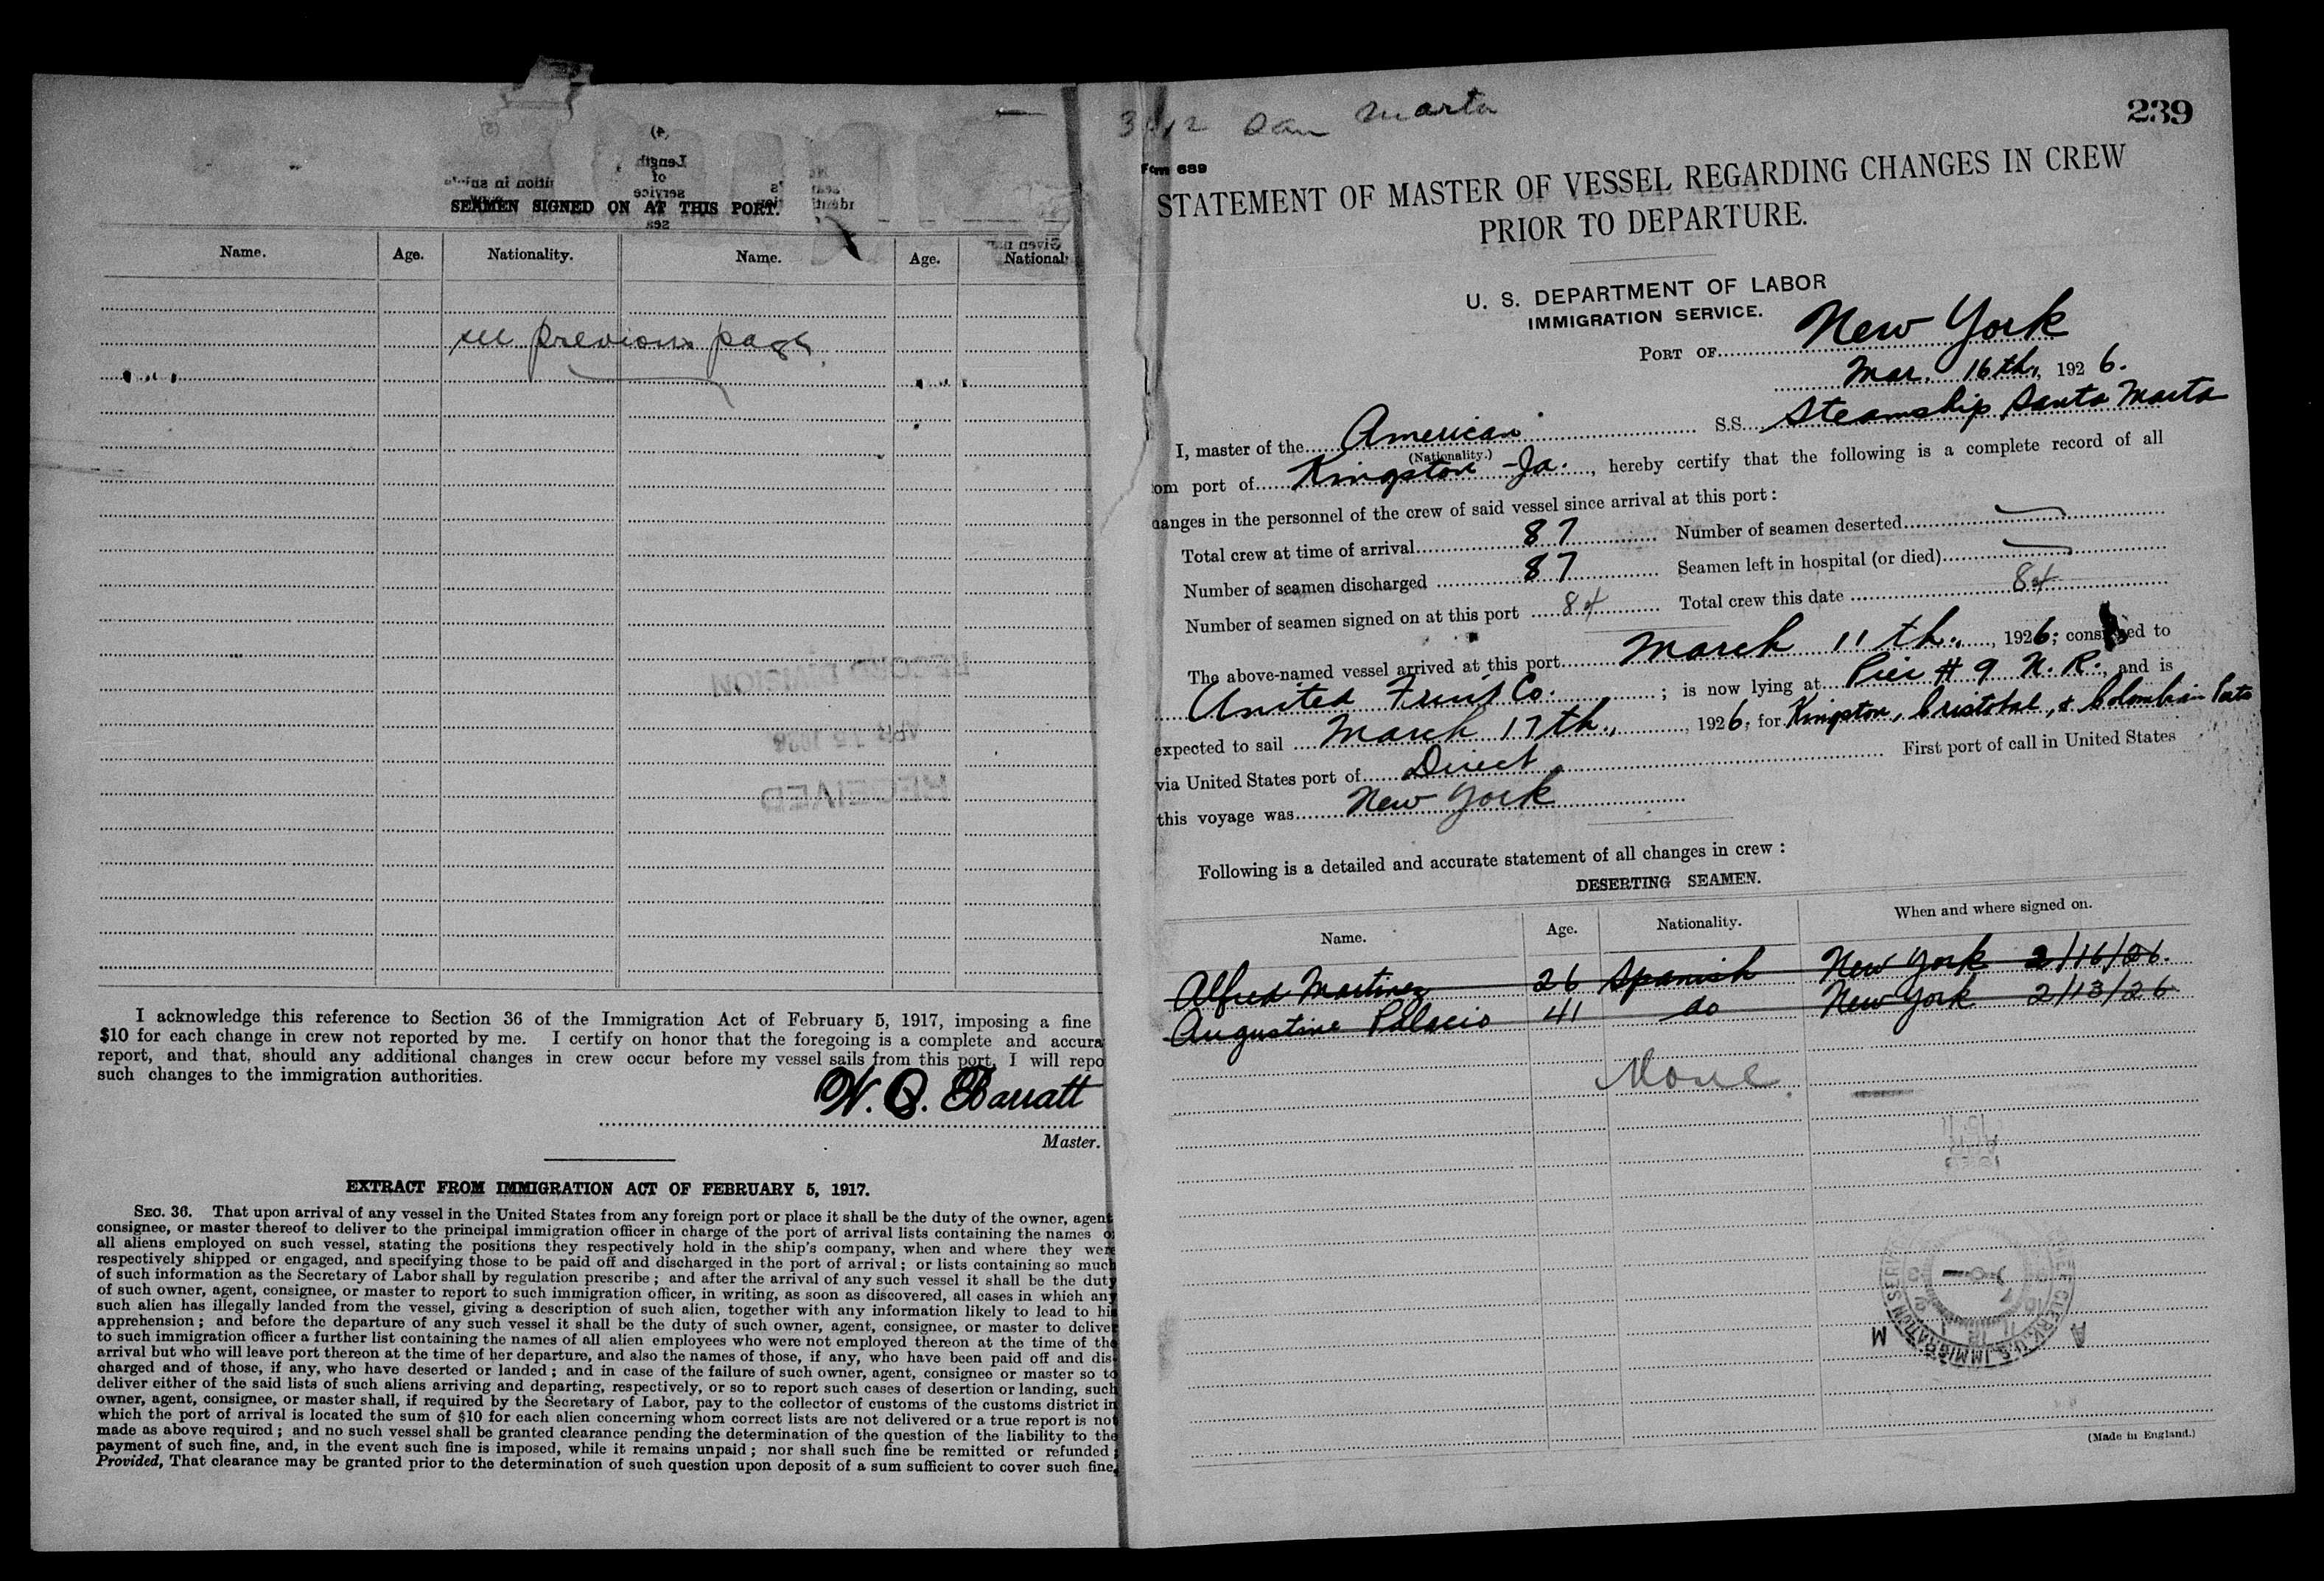 SEAMEN SIGNED ON AT THIS PORT.
Name. Age. Nationality. Name. Age. National
see previous page
I acknowledge this reference to Section 36 of the Immigration Act of February 5, 1917, imposing a fine
$10 for each change in crew not reported by me. I certify on honor that the foregoing is a complete and accura
report, and that, should any additional changes in crew occur before my vessel sails from this port, I will repo
such changes to the immigration authorities.
W. Q. Barratt
Master.
EXTRACT FROM IMMIGRATION ACT OF FEBRUARY 5, 1917.
SEC. 36. That upon arrival of any vessel in the United States from any foreign port or place it shall be the duty of the owner, agent
consignee, or master thereof to deliver to the principal immigration officer in charge of the port of arrival lists containing the names o
all aliens employed on such vessel, stating the positions they respectively hold in the ship's company, when and where they were
respectively shipped or engaged, and specifying those to be paid off and discharged in the port of arrival; or lists containing so much
of such information as the Secretary of Labor shall by regulation prescribe; and after the arrival of any such vessel it shall be the duty
of such owner, agent, consignee, or master to report to such immigration officer, in writing, as soon as discovered, all cases in which any
such alien has illegally landed from the vessel, giving a description of such alien, together with any information likely to lead to his
apprehension; and before the departure of any such vessel it shall be the duty of such owner, agent, consignee, or master to deliver
to such immigration officer a further list containing the names of all alien employees who were not employed thereon at the time of the
arrival but who will leave port thereon at the time of her departure, and also the names of those, if any, who have been paid off and dis-
charged and of those, if any, who have deserted or landed; and in case of the failure of such owner, agent, consignee or master so to
deliver either of the said lists of such aliens arriving and departing, respectively, or so to report such cases of desertion or landing, such
owner, agent, consignee, or master shall, if required by the Secretary of Labor, pay to the collector of customs of the customs district in
which the port of arrival is located the sum of $10 for each alien concerning whom correct lists are not delivered or a true report is not
made as above required; and no such vessel shall be granted clearance pending the determination of the question of the liability to the
payment of such fine, and, in the event such fine is imposed, while it remains unpaid; nor shall such fine be remitted or refunded;
Provided, That clearance may be granted prior to the determination of such question upon deposit of a sum sufficient to cover such fine,
San Marta
239
Form 689
STATEMENT OF MASTER OF VESSEL REGARDING CHANGES IN CREW
PRIOR TO DEPARTURE.
U. S. DEPARTMENT OF LABOR
IMMIGRATION SERVICE.
PORT OF New York
Mar. 16th, 1926.
I, master of the American S.S. Steamship Santa Marta
(Nationality.)
om port of Kingston-Ja., hereby certify that the following is a complete record of all
anges in the personnel of the crew of said vessel since arrival at this port:
Total crew at time of arrival 87 Number of seamen deserted
Number of seamen discharged 87 Seamen left in hospital (or died)
Number of seamen signed on at this port 84 Total crew this date 84
The above-named vessel arrived at this port March 11th, 1926; consigned to
United Fruit Co.; is now lying at Pier # 9 N. R., and is
expected to sail March 17th, 1926; for Kingston, Cristobal, & Colombian Ports
via United States port of Direct First port of call in United States
this voyage was New York
Following is a detailed and accurate statement of all changes in crew:
DESERTING SEAMEN.
Name. Age. Nationality. When and where signed on.
Alfred Martinez 26 Spanish New York 2/16/26.
Augustine Palacio 41 do New York 2/13/26
None
(Made in England.)